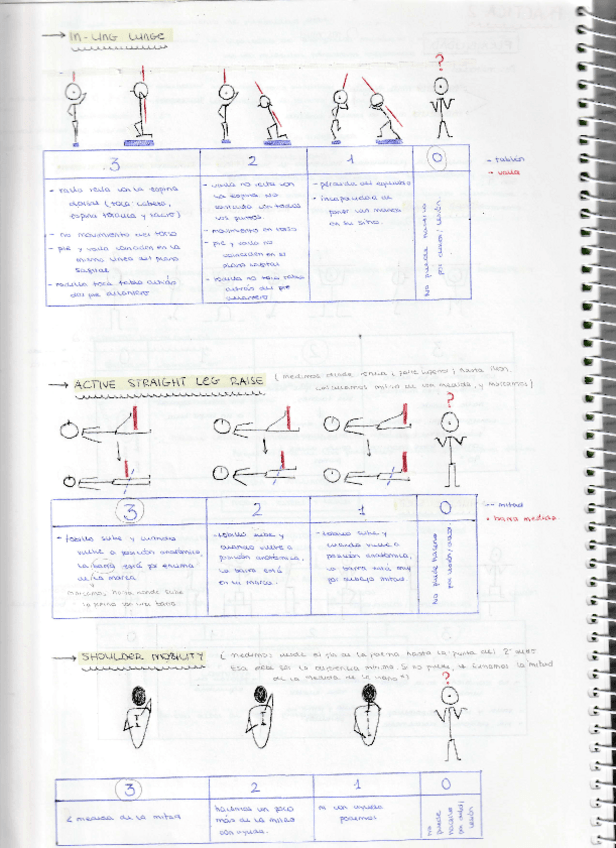 → IN-LING LUNGE
?
3 2 1 0
- tablón
- vara
- vara recta con la espina
dorsal (toca cabeza,
espina torácica y sacro)
- no movimiento del torso
- pie y vara coinciden en la
misma línea del plano
sagital
- rodilla toca tabla detrás
del pie delantero
- vara no recta con
la espina
contacta con todos
los puntos
- movimiento en torso
- pie y vara no
coinciden en el
plano sagital
- rodilla no toca tabla
detrás del pie
delantero
- pérdida del equilibrio
- incapacidad de
poner las manos
en su sitio.
No puede hacerlo
por dolor/lesión
→ ACTIVE STRAIGHT LEG RAISE (medimos desde
hasta
calculamos mitad de esa medida, y marcamos)
?
3 2 1 0
-- mitad
- barra medidas
- tobillo sube y cuando
vuelve a posición anatómica,
la barra está por encima
de la marca
- tobillo sube y
cuando vuelve a
posición anatómica,
la barra está
en la marca.
- tobillo sube y
cuando vuelve a
posición anatómica,
la barra está muy
por debajo mitad
No puede hacerlo
por
→ SHOULDER MOBILITY (medimos desde
hasta la punta del 2º
Esa debe ser la distancia mínima. Si no puede, le damos la mitad
de la medida de la mano)
?
3 2 1 0
< medida de la mitad
hacemos un poco
más de la mitad
con ayuda.
ni con ayuda
podemos
no
puede
hacerlo
por dolor/
lesión